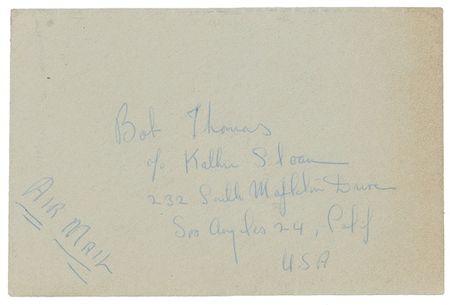 Bob Thomas
c/o Kathie Sloan
232 South Mapleton Drive
Los Angeles 24, Calif
USA
AIR MAIL